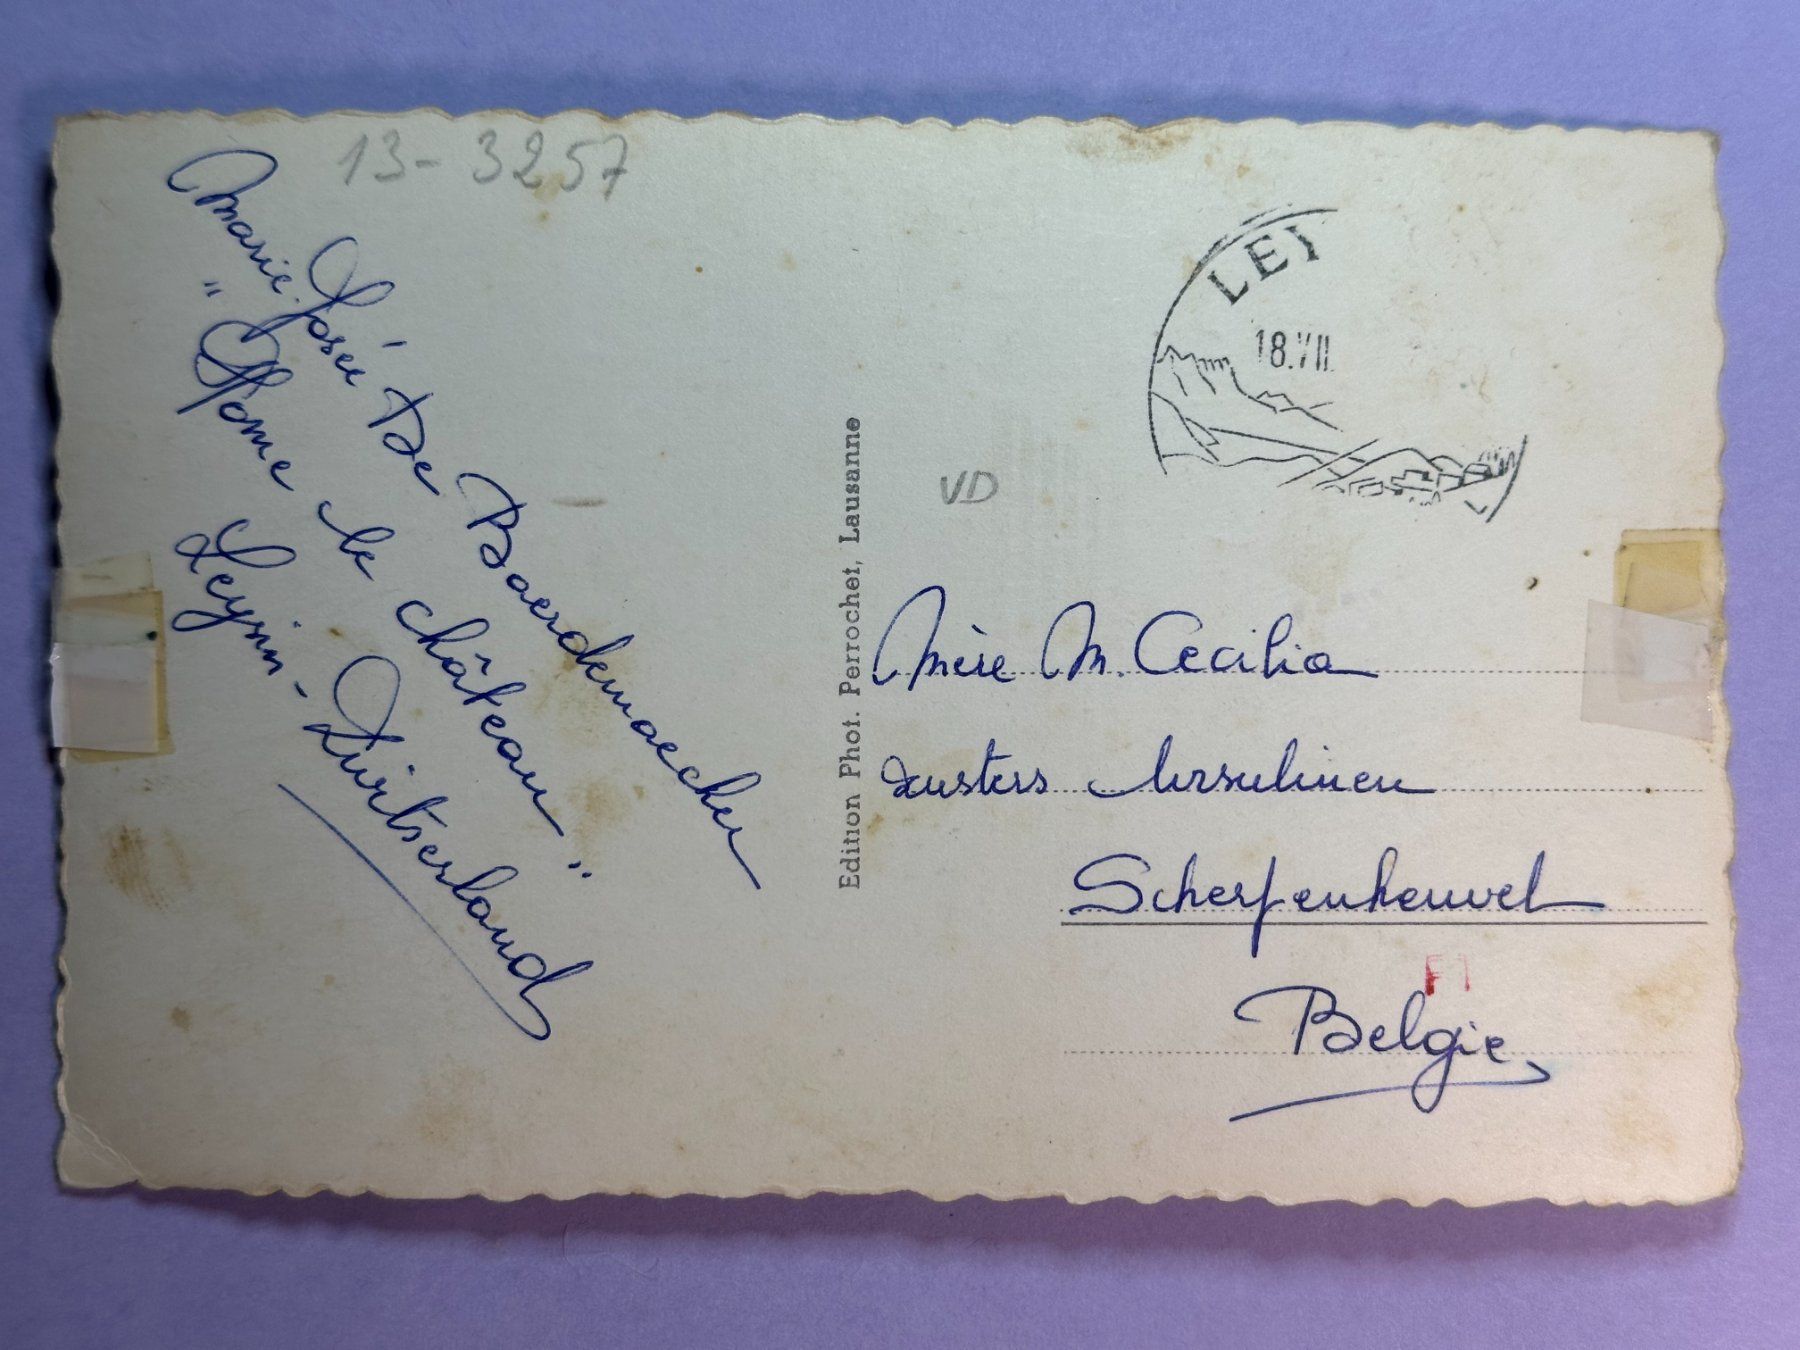 13-3257
Marie-José De Baerdemaecker
"Home le château"
Leysin - Zwitserland
Edition Phot. Perrochet, Lausanne
VD
LEY
18.VII
Mère M. Cecilia
zusters Ursulinen
Scherpenheuvel
Belgie